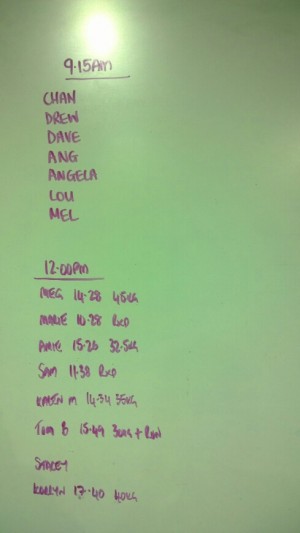 9.15AM
CHAN
DREW
DAVE
ANG
ANGELA
LOU
MEL
12.00PM
MEG 14.28 45KG
MARIE 10.28 RXD
AMIE 15.26 32.5KG
SAM 11.38 RXD
KAREN M 14.34 35KG
TOM B 15.49 30KG + ROW
STACEY
KORRYN 17.40 40KG